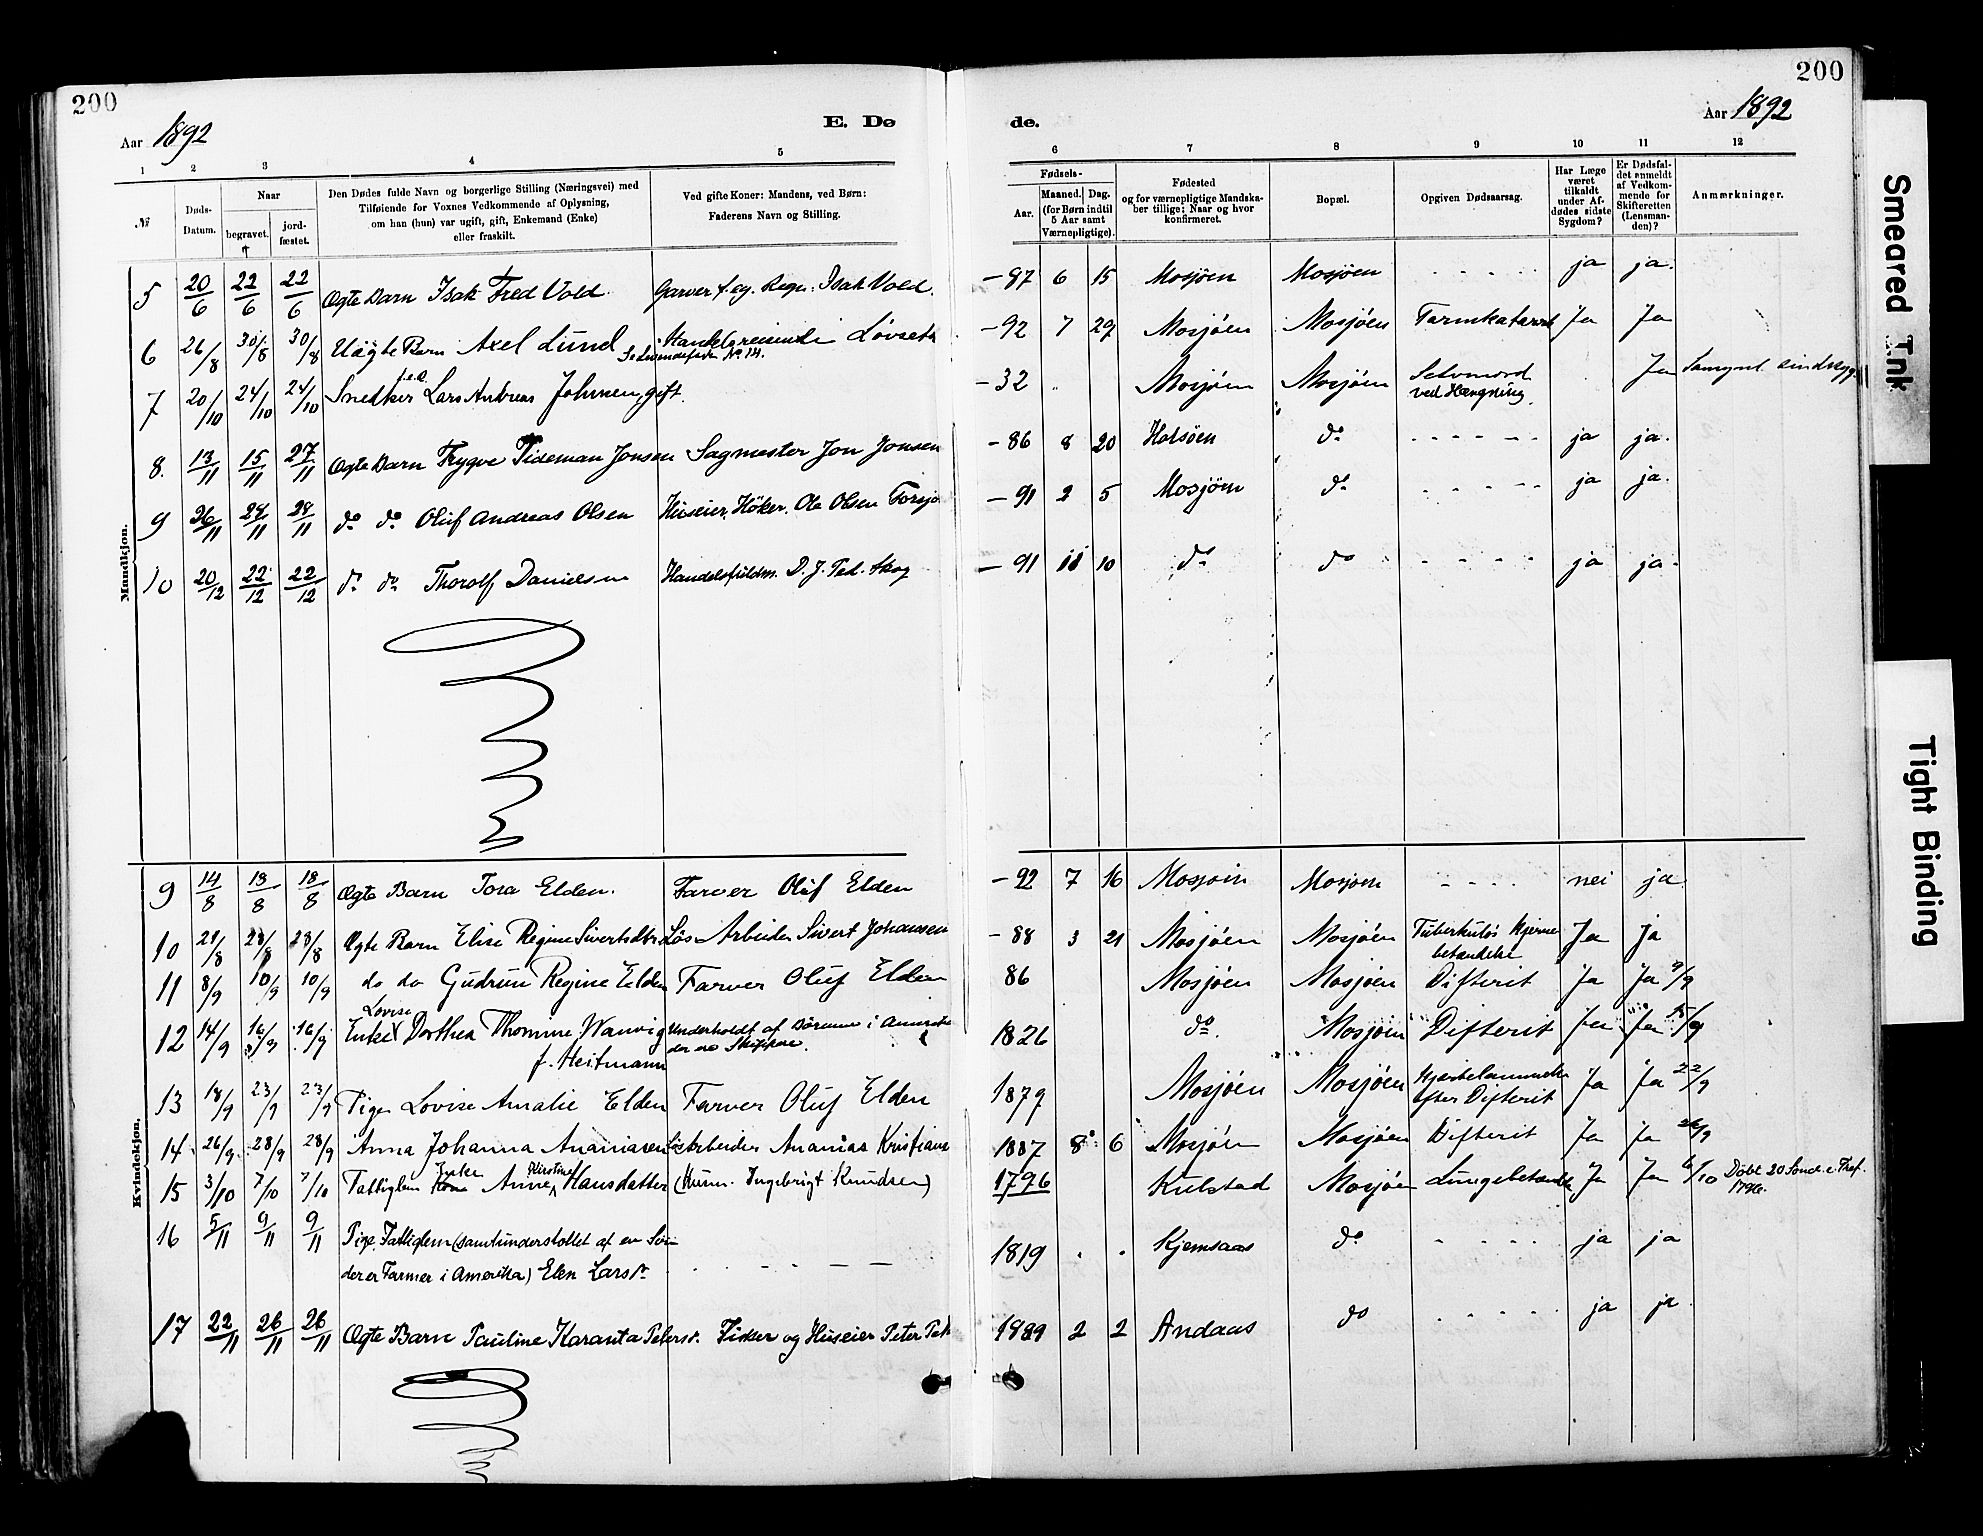 200
Aar 1892
E. Dø
1 2 3 4 5
№
Døds-Datum.
Naar
begravet.
jordfæstet.
Den Dødes fulde Navn og borgerlige Stilling (Næringsvei) med
Tilføiende for Voxnes Vedkommende af Oplysning,
om han (hun) var ugift, gift, Enkemand (Enke)
eller fraskilt.
Ved gifte Koner: Mandens, ved Børn:
Faderens Navn og Stilling.
Mandkjøn.
5 20/6 22/6 22/6 Ægte Barn Isak Fred Vold. Garver Isak Vold.
6 26/8 30/8 30/8 Uægte Barn Axel Lund Handelsreisende Løvseth
7 20/10 24/10 24/10 Snedker Lars Andreas Johnsen, gift.
8. 13/11 15/11 27/11 Ægte Barn Trygve Tideman Jonsen Sagmester Jon Jonsen
9 26/11 29/11 29/11 do do Oluf Andreas Olsen Huseier, Höker. Ole Olsen Forsjo
10 20/12 22/12 22/12 do do Thorolf Danielsen Handelsfuldm. D. J. Ped. Skog
Kvindekjøn.
9 14/8 18/8 18/8 Ægte Barn Tora Elden. Farver Oluf Elden
10 21/8 23/8 23/8 Ægte Barn Elise Regine Sivertsdtr Løs Arbeider Sivert Johansen
11 8/9 10/9 10/9 do do Gudrun Regine Elden Farver Oluf Elden
Lovise
12 14/9 16/9 16/9 Enke Dorthea Thomine Wanvig Underholdt af Børnene i Amerika
f. Heitmann der ere Skippere.
13 18/9 23/9 23/9 Pige Lovise Amalie Elden Farver Oluf Elden
14 26/9 28/9 28/9 Anna Johanna Ananiasen Løsarbeider Ananias Kristians
Enke Kirstine
15 3/10 7/10 7/10 Fattiglem Kone Anne Hansdatter (Husm. Ingebrigt Knudsen)
16 5/11 9/11 9/11 Pige, Fattiglem (samt understöttet af en Sön
der er Farmer i Amerika) Elen Larsd.
17 22/11 26/11 26/11 Ægte Barn Pauline Karanta Petersd. Fisker og Huseier Peter Pet
200
Aar 1892
de.
6 7 8 9 10 11 12
Fødsels-
Aar.
Maaned. Dag.
(for Børn indtil
5 Aar samt
Værnepligtige).
Fødested
og for værnepligtige Mandska-
ber tillige: Naar og hvor
konfirmeret.
Bopæl.
Opgiven Dødsaarsag.
Har Læge
været
tilkaldt
under Af-
dødes sidste
Sygdom?
Er Dødsfal-
det anmeldt
af Vedkom-
mende for
Skifteretten
(Lensman-
den)?
Anmærkninger.
-87 6 15 Mosjöen Mosjöen ja ja.
-92 7 29 Mosjöen Mosjöen Tarmkatarrh Ja Ja
-32 Mosjöen Mosjöen Selvmord ved Hængning Ja Sindssyg
-86 8 20 Halsöen do ja ja.
-91 2 5 Mosjöen do ja ja.
-91 11 10 do do ja ja.
-92 7 16 Mosjöen Mosjöen nei ja
-88 3 21 Mosjöen Mosjöen Tuberkuløs Hjerne
betændelse Ja Ja
86 Mosjöen Mosjöen Difterit Ja Ja 9/9
1826 do Mosjöen Difterit Ja Ja 15/9
1879 Mosjöen Mosjöen Hjertelammelse
efter Difterit Ja Ja 22/9
1887 8 6 Mosjöen Mosjöen Difterit Ja Ja 26/9
1796 Kulstad Mosjöen Lungebetændelse Ja Ja 6/10 Döbt 20 Sønd. e. Tref.
1796.
1819 Kjemsaas do ja ja
1889 2 2 Andaas do ja ja
Smeared Ink
Tight Binding